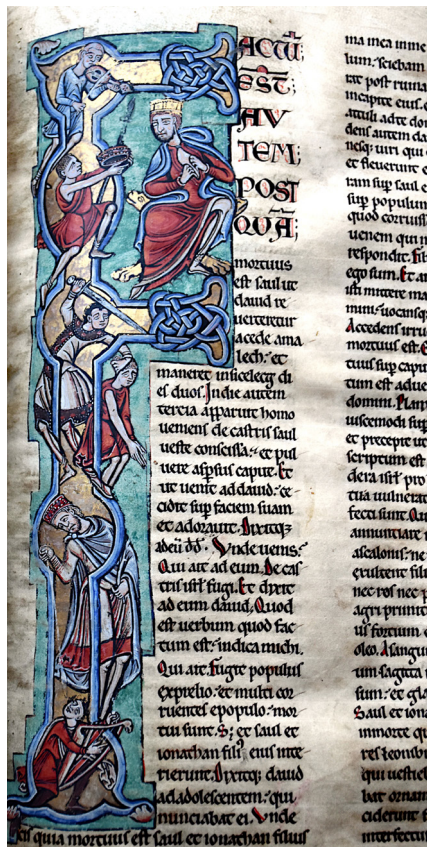 FACTŪ
EST
AV
TEM;
POST
QVĀ;
mortuus
est saul ut
dauid re
uerteretur
acede ama
lech: et
maneret insicelecg di
es duos. Indie autem
tercia apparuit homo
ueniens de castris saul
ueste conscissa: et pul
uere aspsus capite. Et
ut uenit addauid: ce
cidit sup faciem suam
et adorauit. Dixitq;
adeū dd. Vnde uenis:
Qui ait ad eum. De cas
tris isrl fugi. Et dixit
ad eum dauid. Quod
est uerbum quod fac
tum est: indica michi.
Qui ait. Fugit populus
exprelio: et multi cor
ruentes epopulo: mor
tui sunt. S; et saul et
ionathan fili' eius inte
rierunt. Dixitq; dauid
adadolescentem: qui
nunciabat ei. Vnde
scis quia mortuus est saul et ionathan filius
ma mea in me
lum: Sciebam
rat post ruina
incapite eius. e
attuli adte do
dens autem da
nesq; uiri qui
et fleuerunt e
ram sup saul e
sup populum
quod corruiss
uenem qui n
respondit. Fili
ego sum. Et ai
isti mittere ma
mini: uocansq
Accedens irru
mortuus est. E
tuus sup capu
tum est adue
domini. Planx
uiscemodi sup
et precepit ut
scriptum est
dera isrl pro
tua uulnerat
fecti sunt. Qu
annuntiare i
ascalonis: ne
exultent fili
nec ros nec p
agri primiti
us fortium c
oleo. A sangui
um sagitta i
sum: et gla
Saul et iona
inmorte qu
res leonib
qui uestieb
bat ornam
ciderunt f
interfectus